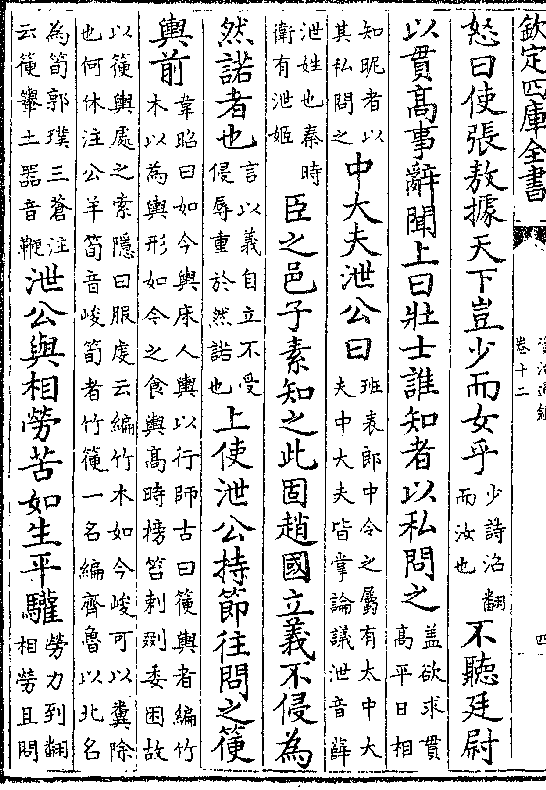 欽定四庫全書
資治通鑑
卷十二
四
怒曰使張敖據天下豈少而女乎少詩沼翻而汝也不聽廷尉
以貫髙事辭聞上曰壯士誰知者以私問之盖欲求貫髙平日相
知昵者以其私問之中大夫泄公曰班表郎中令之屬有太中大夫中大夫皆掌論議泄音薛
泄姓也秦時衛有泄姬臣之邑子素知之此固趙國立義不侵為
然諾者也言以義自立不受侵辱重於然諾也上使泄公持節往問之箯
輿前韋昭曰如今輿牀人輿以行師古曰箯輿者編竹木以為輿形如今之食輿髙時榜笞刺剟委困故
以箯輿處之索隱曰服虔云編竹木如今峻可以糞除也何休注公羊筍音峻筍者竹箯一名編齊魯以北名
為筍郭璞三蒼注云箯轝土器音鞭泄公與相勞苦如生平驩勞力到翻相勞且問